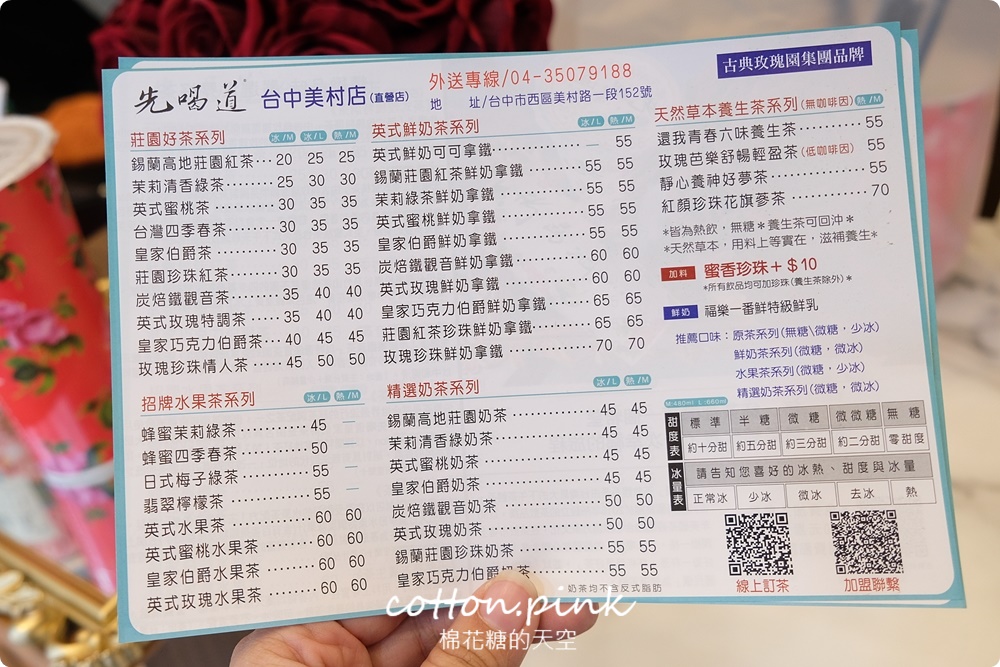 先喝道 台中美村店(直營店)
外送專線/04-35079188
地 址/台中市西區美村路一段152號
古典玫瑰園集團品牌
莊園好茶系列 冰/M 冰/L 熱/M
錫蘭高地莊園紅茶⋯20 25 25
茉莉清香綠茶⋯⋯⋯25 30 30
英式蜜桃茶⋯⋯⋯30 35 35
台灣四季春茶⋯⋯⋯30 35 35
皇家伯爵茶⋯⋯⋯30 35 35
莊園珍珠紅茶⋯⋯⋯30 35 35
炭焙鐵觀音茶⋯⋯⋯35 40 40
英式玫瑰特調茶⋯⋯35 40 40
皇家巧克力伯爵茶⋯40 45 45
玫瑰珍珠情人茶⋯⋯45 50 50
招牌水果茶系列 冰/L 熱/M
蜂蜜茉莉綠茶⋯⋯⋯45 —
蜂蜜四季春茶⋯⋯⋯50 —
日式梅子綠茶⋯⋯⋯55 —
翡翠檸檬茶⋯⋯⋯55 —
英式水果茶⋯⋯⋯60 60
英式蜜桃水果茶⋯⋯⋯60 60
皇家伯爵水果茶⋯⋯⋯60 60
英式玫瑰水果茶⋯⋯⋯60 60
英式鮮奶茶系列 冰/L 熱/M
英式鮮奶可可拿鐵⋯⋯⋯— 55
錫蘭莊園紅茶鮮奶拿鐵⋯⋯⋯55 55
茉莉綠茶鮮奶拿鐵⋯⋯⋯55 55
英式蜜桃鮮奶拿鐵⋯⋯⋯55 55
皇家伯爵鮮奶拿鐵⋯⋯⋯55 55
炭焙鐵觀音鮮奶拿鐵⋯⋯⋯60 60
英式玫瑰鮮奶拿鐵⋯⋯⋯60 60
皇家巧克力伯爵鮮奶拿鐵⋯⋯⋯65 65
莊園紅茶珍珠鮮奶拿鐵⋯⋯⋯65 65
玫瑰珍珠鮮奶拿鐵⋯⋯⋯70 70
精選奶茶系列 冰/L 熱/M
錫蘭高地莊園奶茶⋯⋯⋯45 45
茉莉清香綠奶茶⋯⋯⋯45 45
英式蜜桃奶茶⋯⋯⋯45 45
皇家伯爵奶茶⋯⋯⋯45 45
炭焙鐵觀音奶茶⋯⋯⋯50 50
英式玫瑰奶茶⋯⋯⋯50 50
錫蘭莊園珍珠奶茶⋯⋯⋯55 55
皇家巧克力伯爵奶茶⋯⋯⋯55 55
奶茶均不含反式脂肪
天然草本養生茶系列(無咖啡因) 熱/M
還我青春六味養生茶⋯⋯⋯55
玫瑰芭樂舒暢輕盈茶(低咖啡因) 55
靜心養神好夢茶⋯⋯⋯55
紅顏珍珠花旗蔘茶⋯⋯⋯70
*皆為熱飲，無糖*養生茶可回沖*
*天然草本，用料上等實在，滋補養生*
加料 蜜香珍珠+$10
*所有飲品均可加珍珠(養生茶除外)*
鮮奶 福樂一番鮮特級鮮乳
推薦口味：原茶系列(無糖\微糖，少冰)
鮮奶茶系列(微糖，微冰)
水果茶系列(微糖，少冰)
精選奶茶系列(微糖，微冰)
M:480ml L:660ml
甜度表 標準 半糖 微糖 微微糖 無糖
約十分甜 約五分甜 約三分甜 約二分甜 零甜度
冰量表 請告知您喜好的冰熱、甜度與冰量
正常冰 少冰 微冰 去冰 熱
線上訂茶 加盟聯繫
cotton.pink
棉花糖的天空